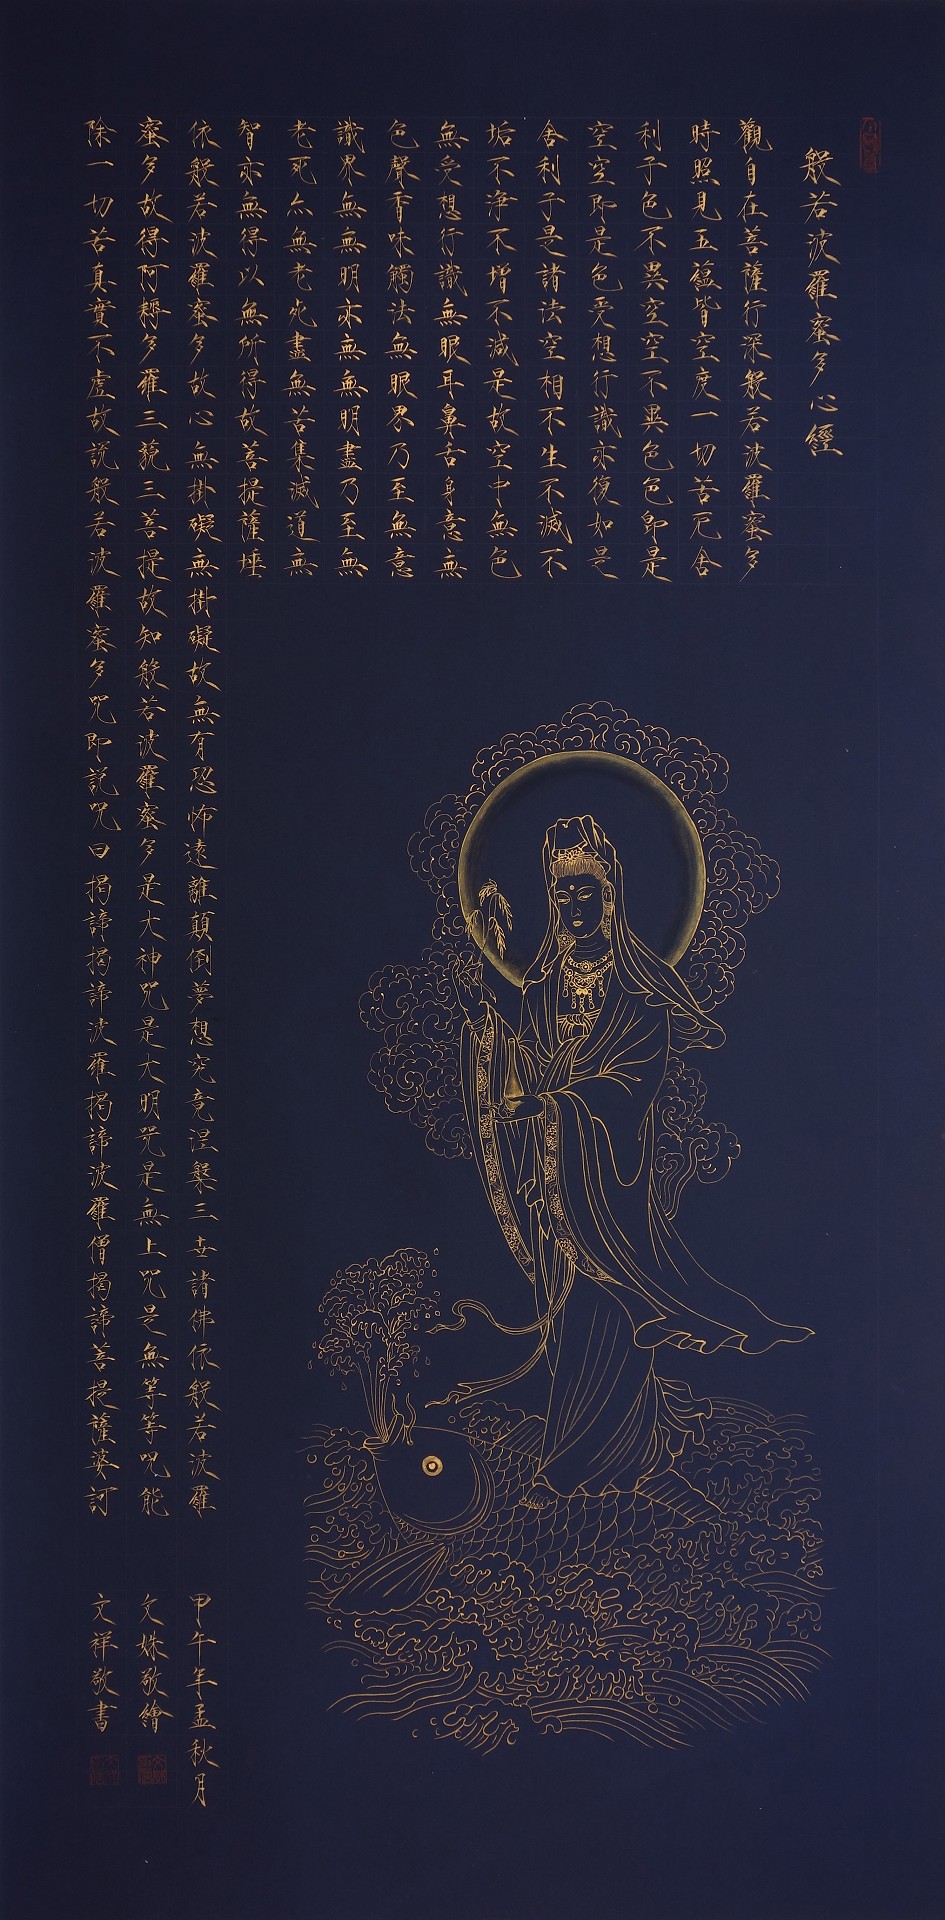 般若波羅蜜多心經
觀自在菩薩行深般若波羅蜜多
時照見五蘊皆空度一切苦厄舍
利子色不異空空不異色色即是
空空即是色受想行識亦復如是
舍利子是諸法空相不生不滅不
垢不淨不增不減是故空中無色
無受想行識無眼耳鼻舌身意無
色聲香味觸法無眼界乃至無意
識界無無明亦無無明盡乃至無
老死亦無老死盡無苦集滅道無
智亦無得以無所得故菩提薩埵
依般若波羅蜜多故心無掛礙無掛礙故無有恐怖遠離顛倒夢想究竟涅槃三世諸佛依般若波羅
蜜多故得阿耨多羅三藐三菩提故知般若波羅蜜多是大神咒是大明咒是無上咒是無等等咒能
除一切苦真實不虛故說般若波羅蜜多咒即說咒曰揭諦揭諦波羅揭諦波羅僧揭諦菩提薩婆訶
甲午年孟秋月
文姝敬繪
文祥敬書